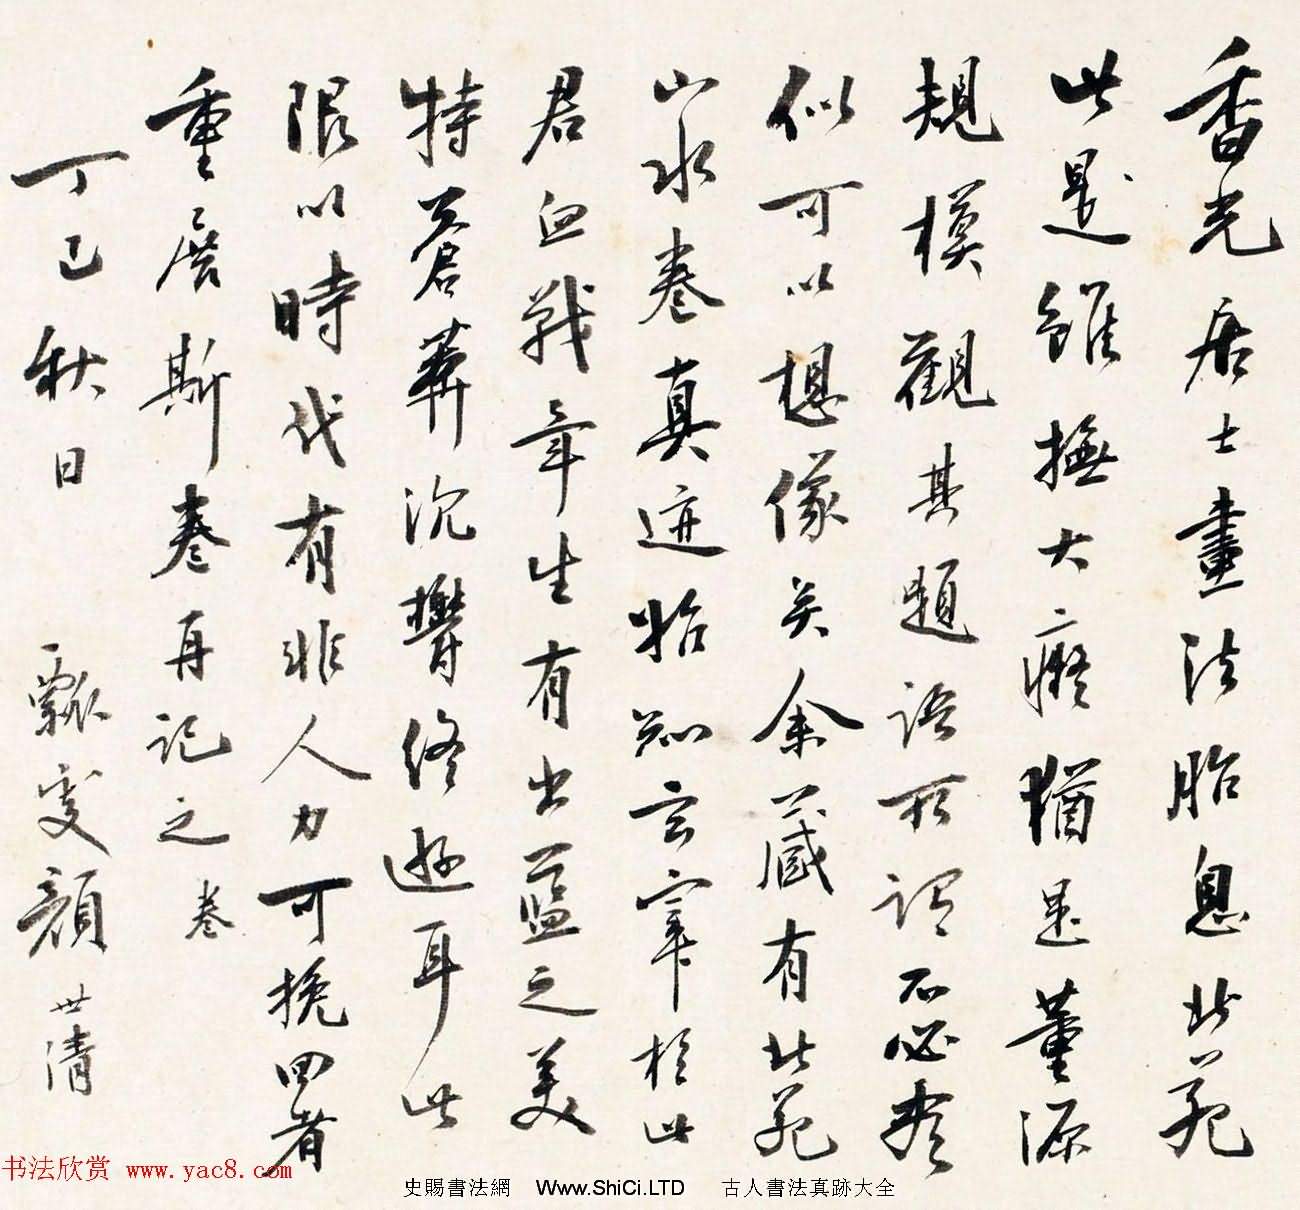 香光居士畫法胎息北苑
此是雖撫大癡猶是董源
規模觀其題語所謂不必盡
似可以想像矣余藏有北苑
山水卷真迹始知玄宰於此
君血戰一年生有出藍之美
特蒼莽沉鬱終遜耳此
限以時代有非人力可挽回者
重展斯卷再記之 卷
丁巳秋日 瓢叟顏世清
书法欣赏 www.yac8.com
史賜書法網 Www.ShiCi.LTD 古人書法真跡大全